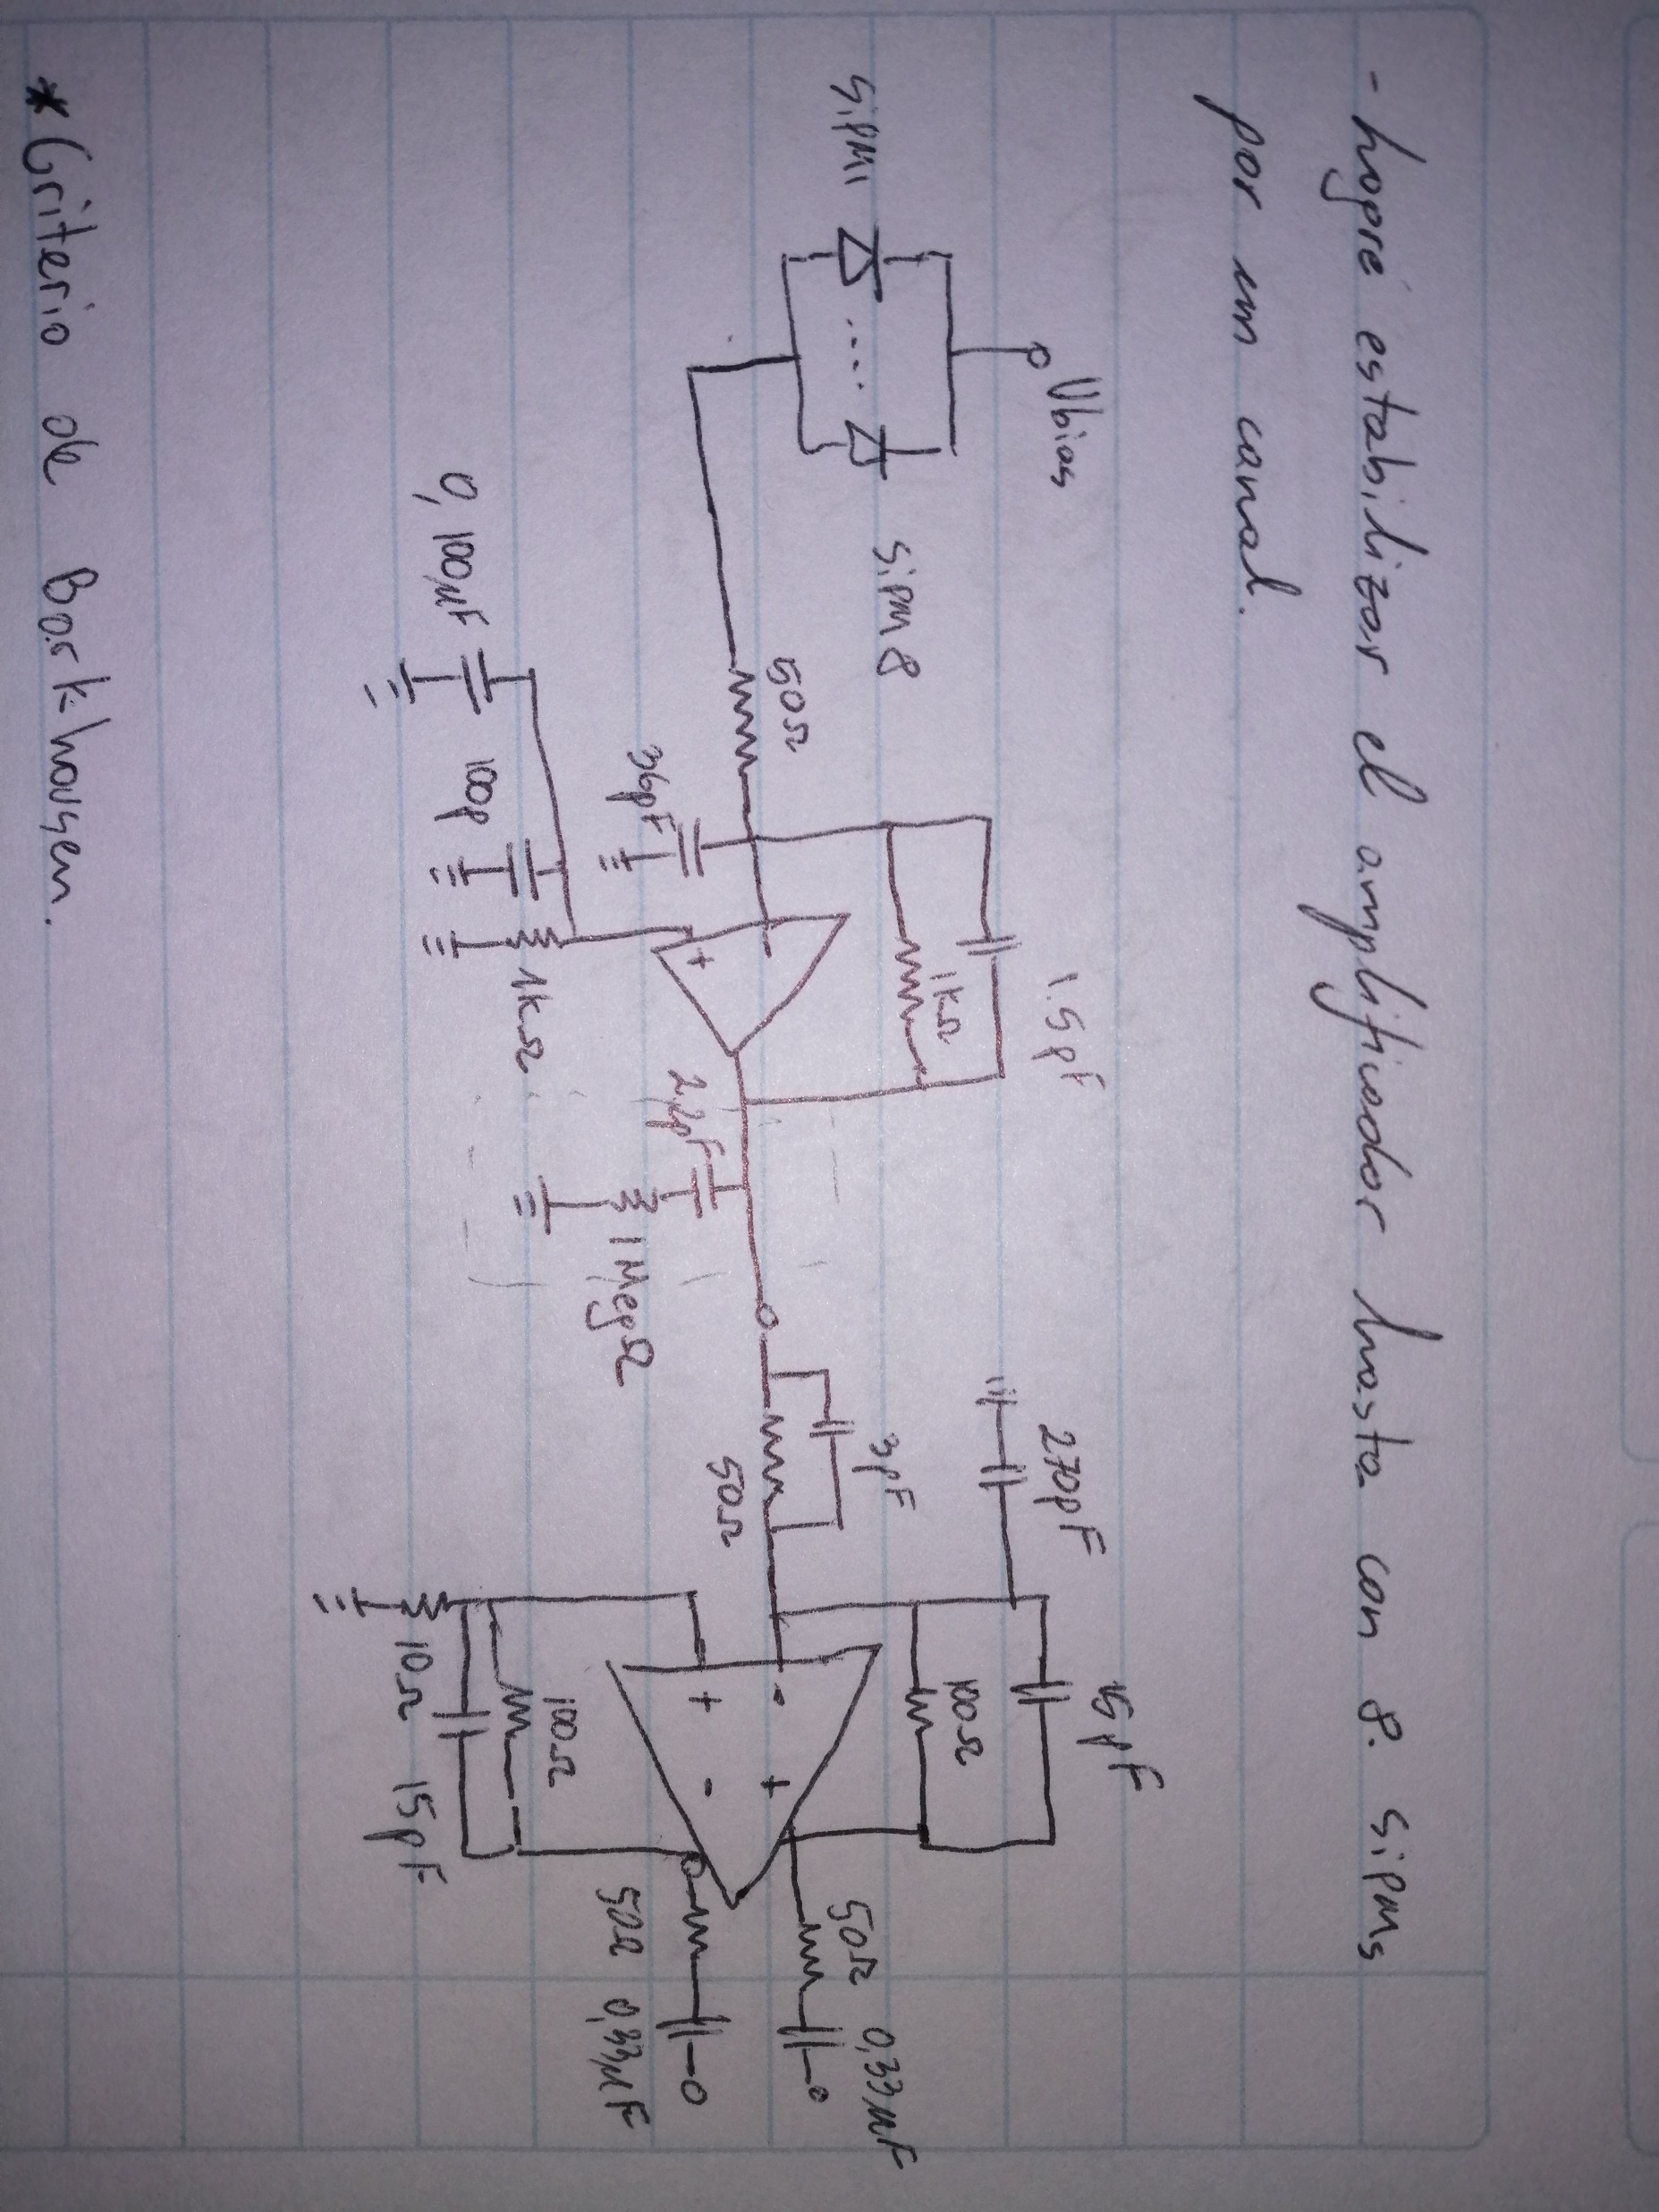 - logré estabilizar el amplificador hasta con 8. sipms
por un canal.
Vbias
Sipm1
Sipm8
50Ω
36pF
0,100μF
100p
1kΩ
+
1.5pF
1kΩ
2.2pF
1MegΩ
3pF
50Ω
270pF
15pF
100Ω
- +
+ -
10Ω
100Ω
15pF
50Ω 0,33μF
50Ω 0,33μF
* Criterio de Barkhausen.